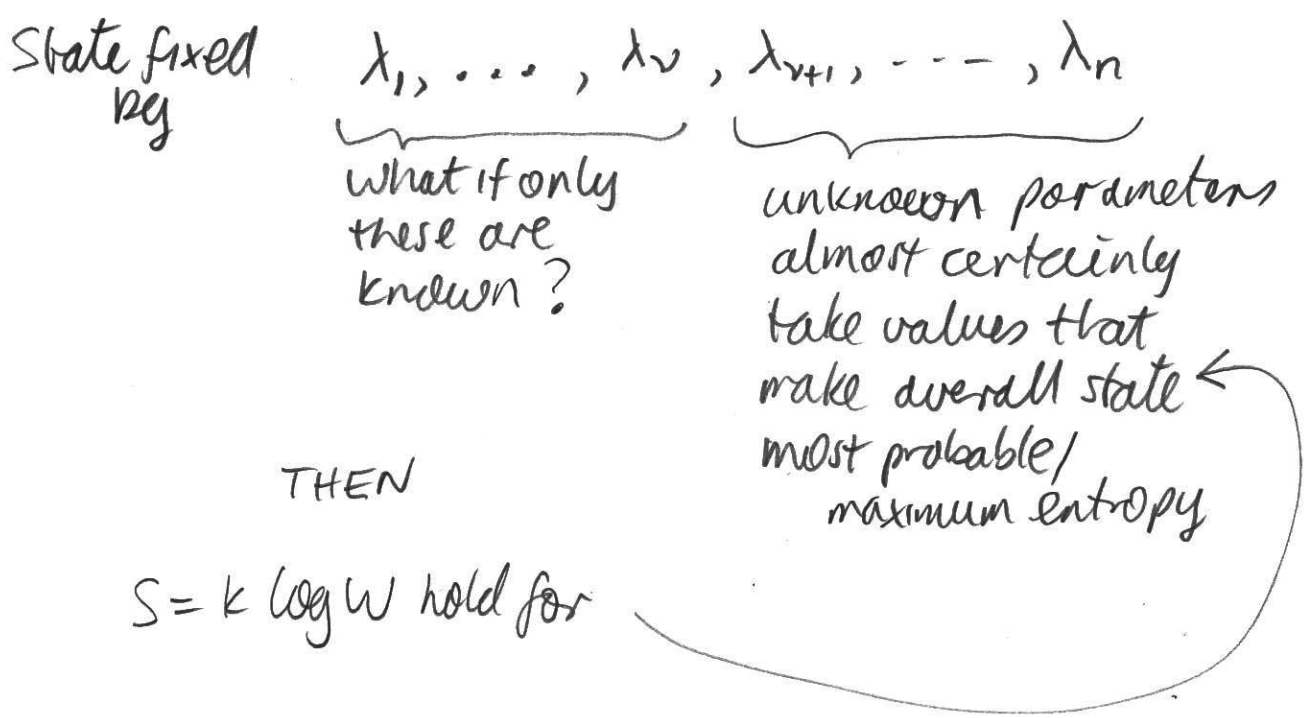 State fixed by λ₁, ..., λν, λν+1, ---, λn
what if only
these are
known?
unknown parameters
almost certainly
take values that
make overall state
most probable/
maximum entropy
THEN
S = k log W hold for